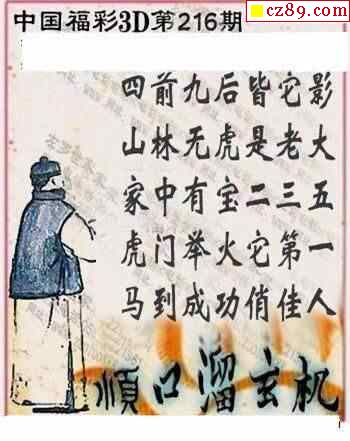 cz89.com
中国福彩3D第216期
四前九后皆它影
山林无虎是老大
家中有宝二三五
虎门举火它第一
马到成功俏佳人
順口溜玄机